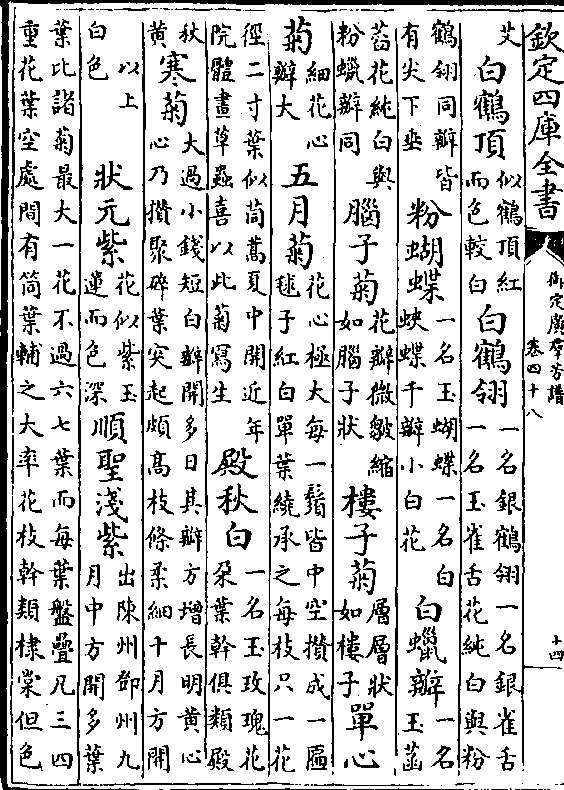 欽定四庫全書
御定廣羣芳譜
卷四十八
十四
艾
白鶴頂
似鶴頂紅
而色較白
白鶴翎
一名銀鶴翎一名銀雀舌
一名玉雀舌花純白與粉
鶴翎同瓣皆
有尖下垂
粉蝴蝶
一名玉蝴蝶一名白
蛺蝶千瓣小白花
白蠟瓣
一名
玉菡
萏花純白與
粉蠟瓣同
腦子菊
花瓣微皺縮
如腦子狀
樓子菊
層層狀
如樓子
單心
菊
細花心
瓣大
五月菊
花心極大每一鬚皆中空攢成一匾
毬子紅白單葉繞承之每枝只一花
徑二寸葉似茼蒿夏中開近年
院體畫草蟲喜以此菊寫生
殿秋白
一名玉玫瑰花
朶葉幹俱類殿
秋
黃
寒菊
大過小錢短白瓣開多日其瓣方增長明黃心
心乃攢聚碎葉突起頗髙枝條柔細十月方開
以上
白色
狀元紫
花似紫玉
蓮而色深
順聖淺紫
出陳州鄧州九
月中方開多葉
葉比諸菊最大一花不過六七葉而每葉盤疊凡三四
重花葉空處間有筒葉輔之大率花枝幹類棣棠但色